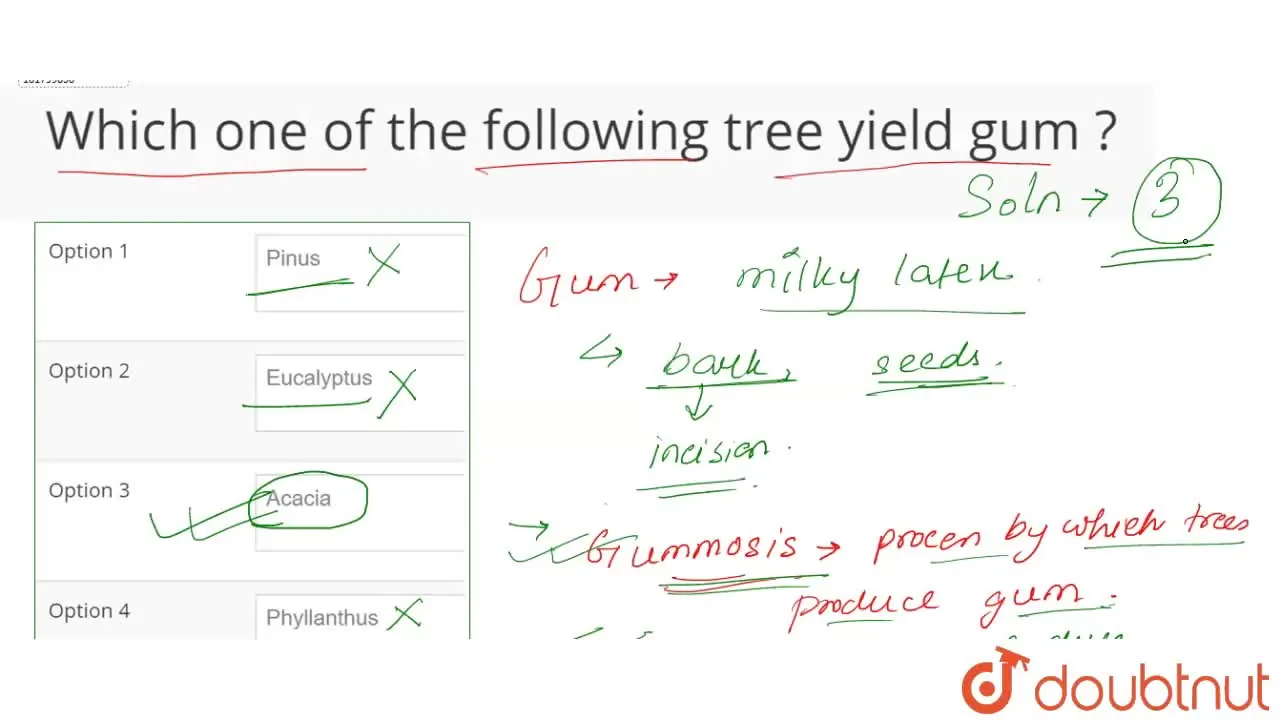 Which one of the following tree yield gum ?
Soln → 3
Option 1 Pinus X
Gum → milky latex.
Option 2 Eucalyptus X
↳ bark, seeds.
incision.
Option 3 Acacia
→ Gummosis → process by which trees
produce gum.
Option 4 Phyllanthus X
doubtnut